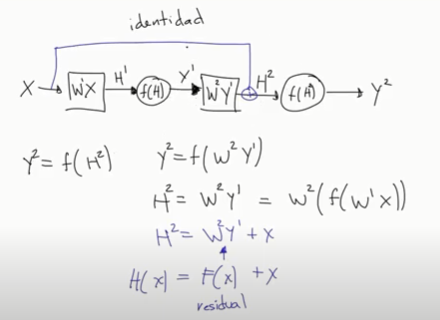 identidad
X → W¹X H¹ f(H) Y¹ W²Y¹ + H² f(H) → Y²
Y² = f(H²) Y² = f(W²Y¹)
H² = W²Y¹ = W²(f(W¹X))
H² = W²Y¹ + X
H(x) = F(x) + X
residual